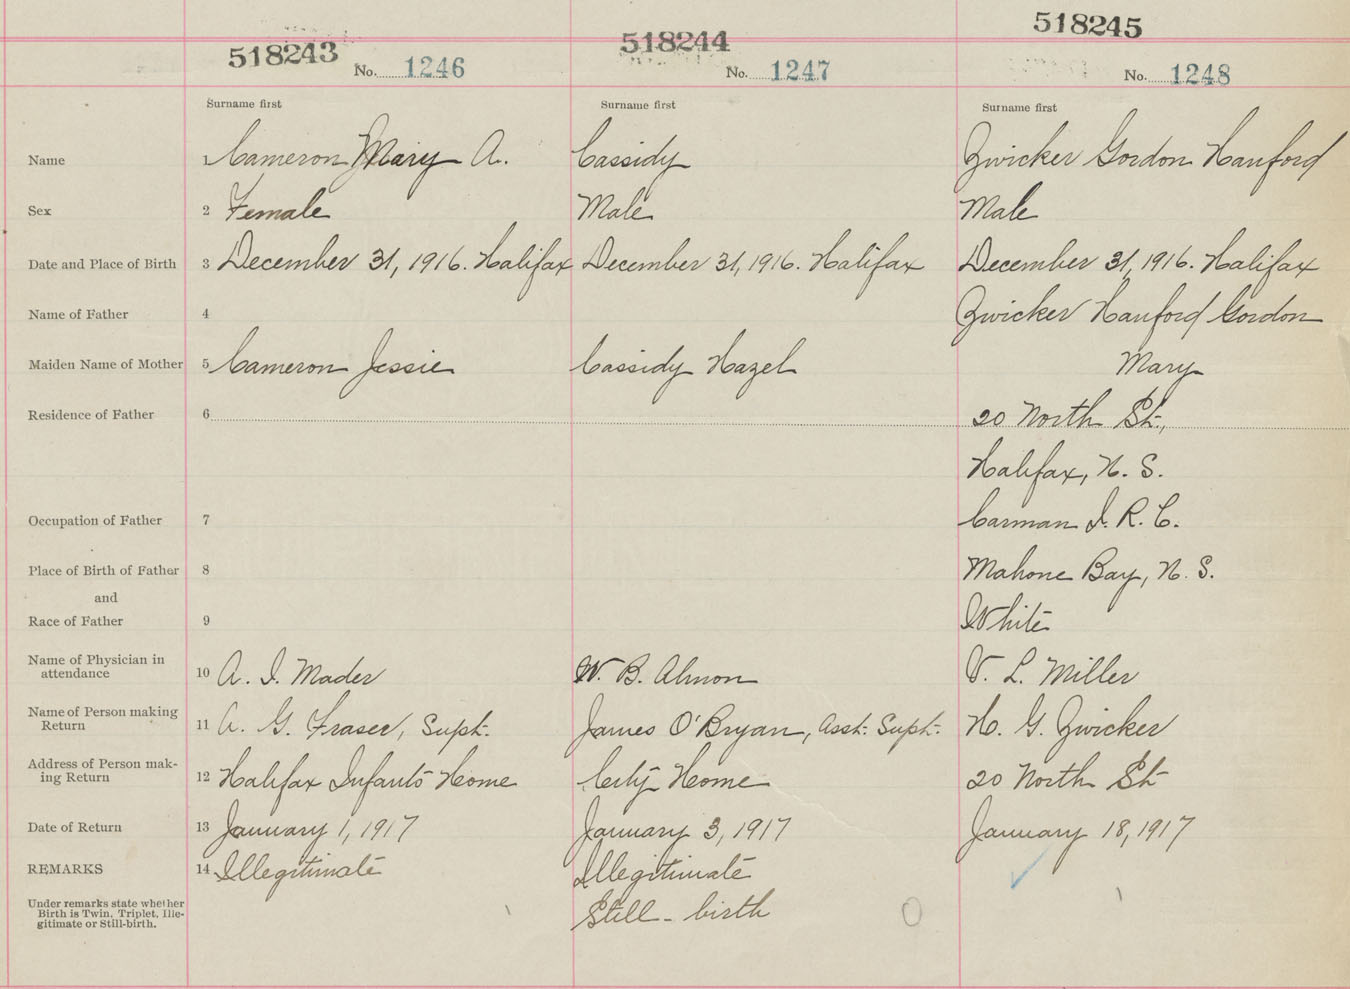 518243 518244 518245
No. 1246 No. 1247 No. 1248
Surname first Surname first Surname first
Name 1 Cameron Mary A. Cassidy Zwicker Gordon Hanford
Sex 2 Female Male Male
Date and Place of Birth 3 December 31, 1916. Halifax December 31, 1916. Halifax December 31, 1916. Halifax
Name of Father 4 Zwicker Hanford Gordon
Maiden Name of Mother 5 Cameron Jessie Cassidy Hazel Mary
Residence of Father 6 20 North St.,
Halifax, N. S.
Occupation of Father 7 Carman I. R. C.
Place of Birth of Father 8 Mahone Bay, N. S.
and
Race of Father 9 White
Name of Physician in
attendance 10 A. I. Mader W. B. Almon V. L. Miller
Name of Person making
Return 11 A. G. Fraser, Supt. James O'Bryan, Asst. Supt. H. G. Zwicker
Address of Person mak-
ing Return 12 Halifax Infants Home City Home 20 North St
Date of Return 13 January 1, 1917 January 3, 1917 January 18, 1917
REMARKS 14 Illegitimate Illegitimate
Under remarks state whether
Birth is Twin, Triplet, Ille-
gitimate or Still-birth.
Still-birth